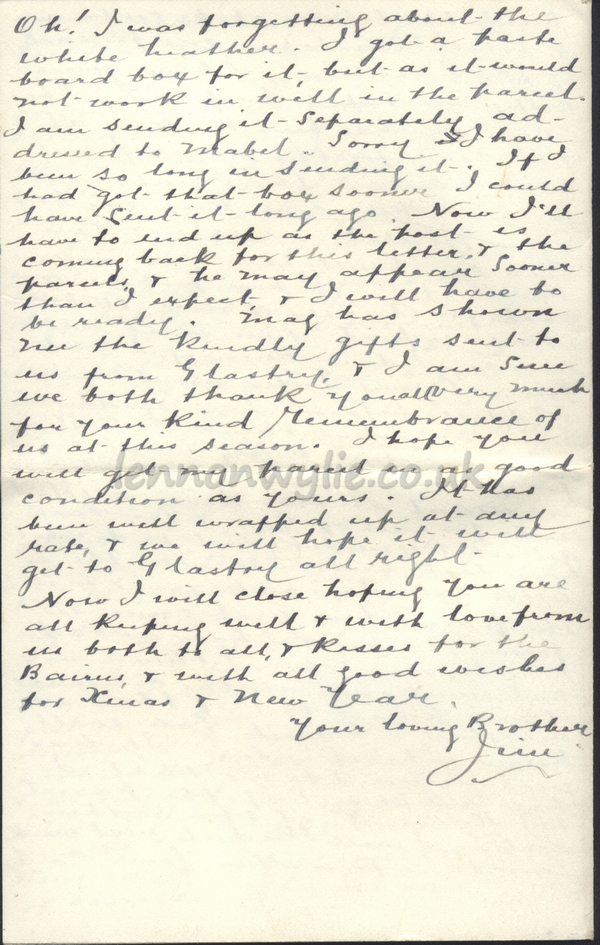 Oh! I was forgetting about the
white heather. I got a paste
board box for it, but as it would
not work in well in the parcel.
I am sending it separately ad-
dressed to Mabel. Sorry I have
been so long in sending it. If I
had got that box sooner I could
have sent it long ago. Now I'll
have to end up as the post is
coming back for this letter, & the
parcels, & he may appear sooner
than I expect, & I will have to
be ready. Mag has shown
me the kindly gifts sent to
us from Glastry, & I am sure
we both thank you all very much
for your kind remembrance of
us at this season. I hope you
will get my parcel in as good
condition as yours. It has
been well wrapped up at any
rate, & we will hope it will
get to Glastry all right.
Now I will close hoping you are
all keeping well & with love from
us both to all, & kisses for the
Bairns, & with all good wishes
for Xmas & New Year.
Your loving Brother
Jim
lennanwylie.co.uk